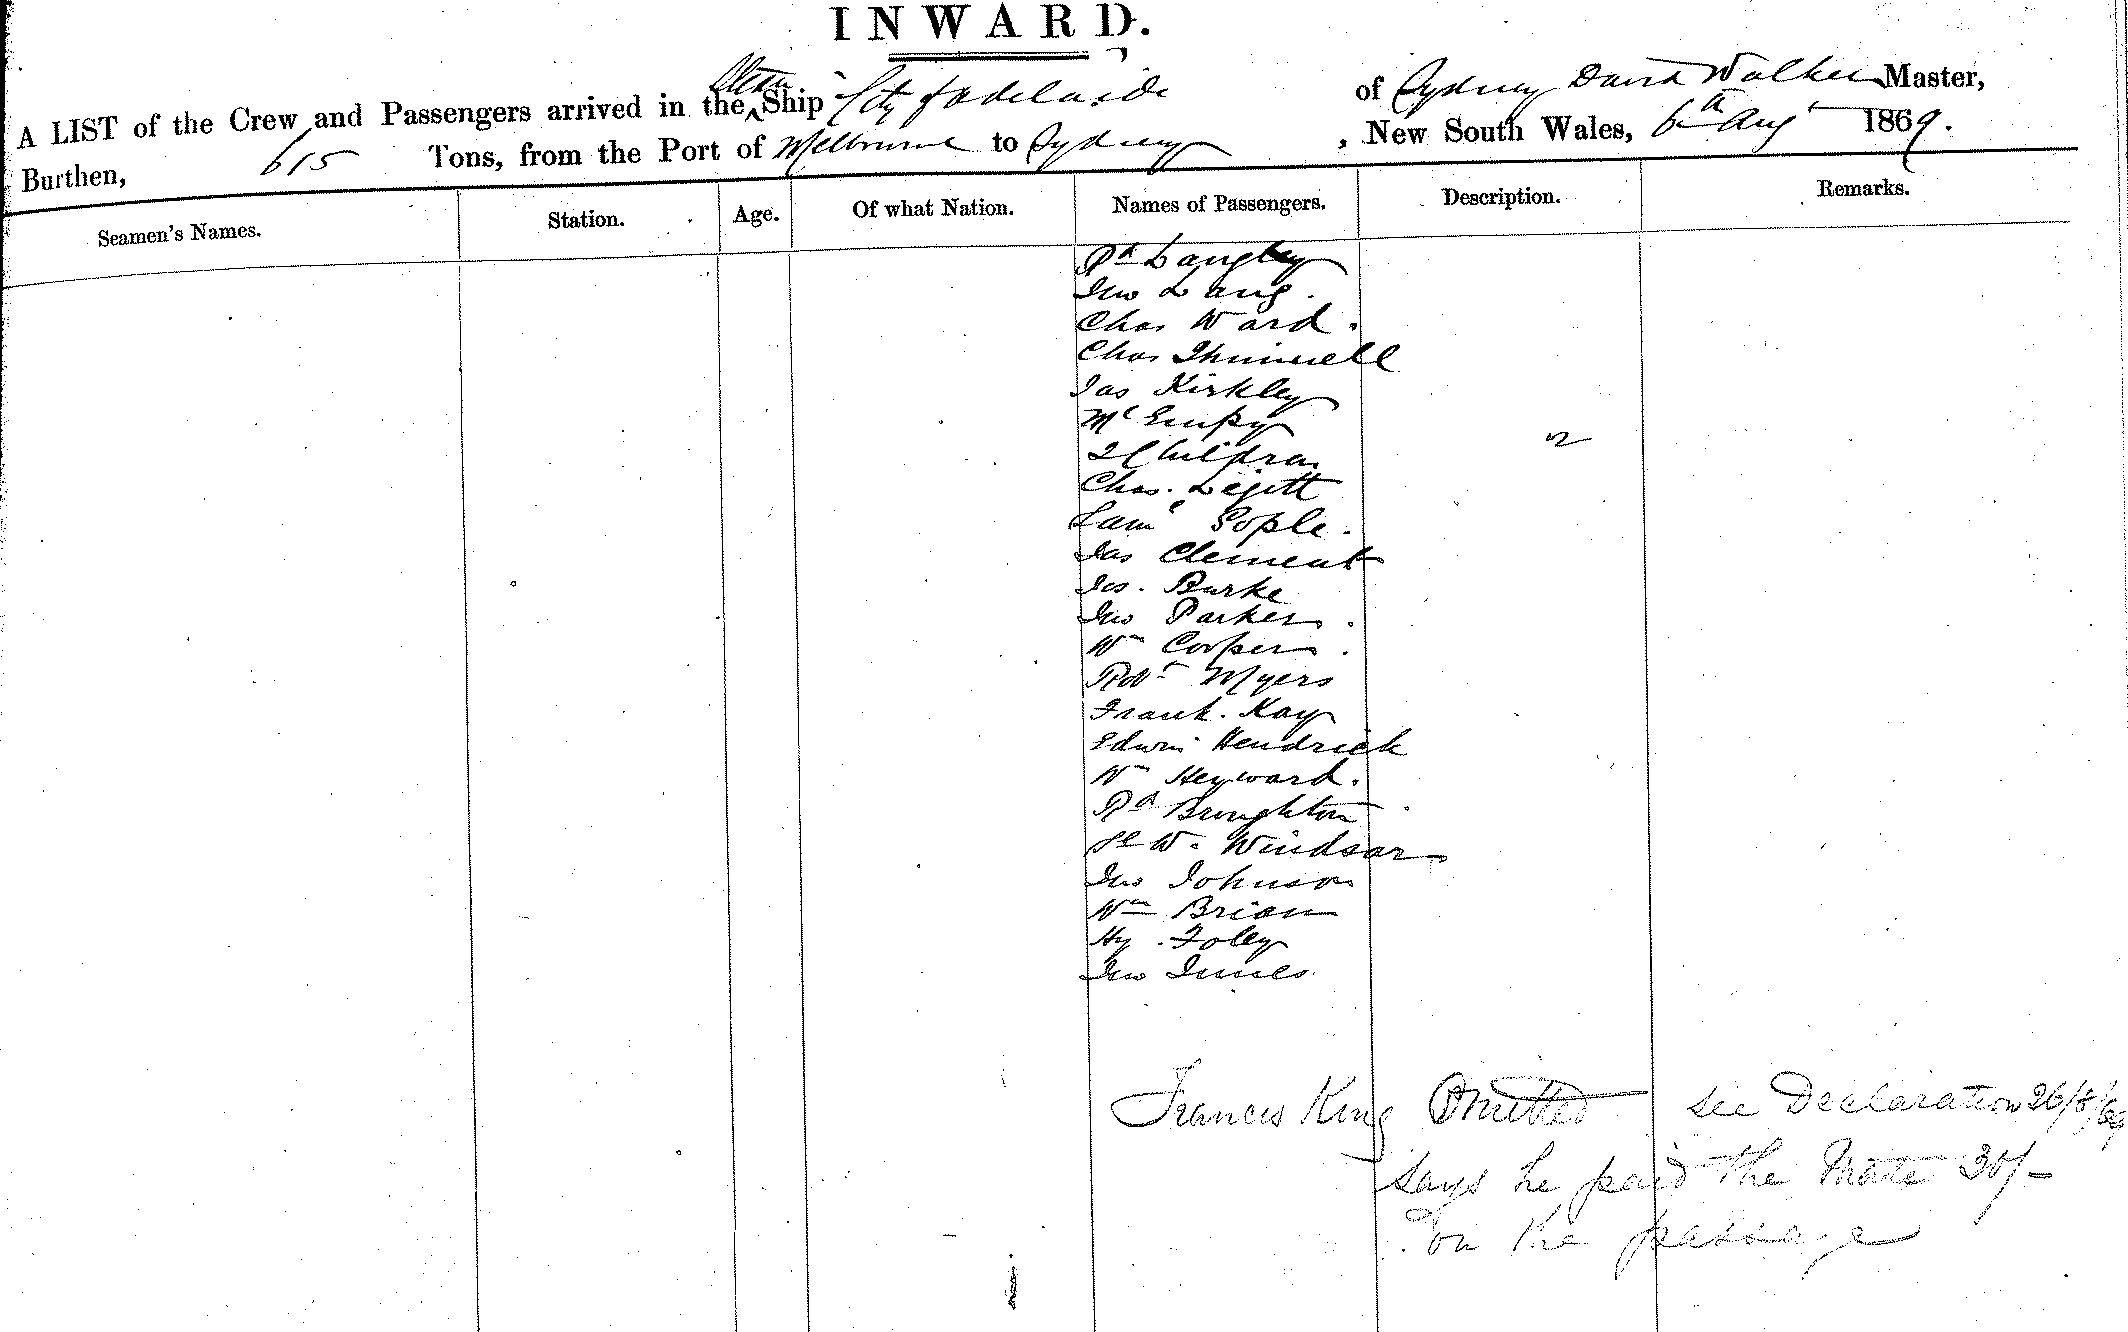 INWARD.
A LIST of the Crew and Passengers arrived in the Steam Ship City of Adelaide of Sydney David Walker Master,
Burthen, 615 Tons, from the Port of Melbourne to Sydney, New South Wales, 6th Augt 1869.
Seamen's Names. Station. Age. Of what Nation. Names of Passengers. Description. Remarks.
Rd Langley
Jno Lang.
Chas Ward.
Chas
Jas Kirkley
2 Children
Chas.
Saml Pople.
Jas Clement
Jas. Burke
Jno Parker.
Wm Cooper.
Robt Myers
Frank. Kay
Edwin Hendrick
Wm Heyward.
Rd Broughton
W. Windsor
Jno Johnson
Wm Brian
Hy. Foley
Jno Innes
Francis King Omitted see Declaration 26/8/69
says he paid the Mate 30/-
on the passage